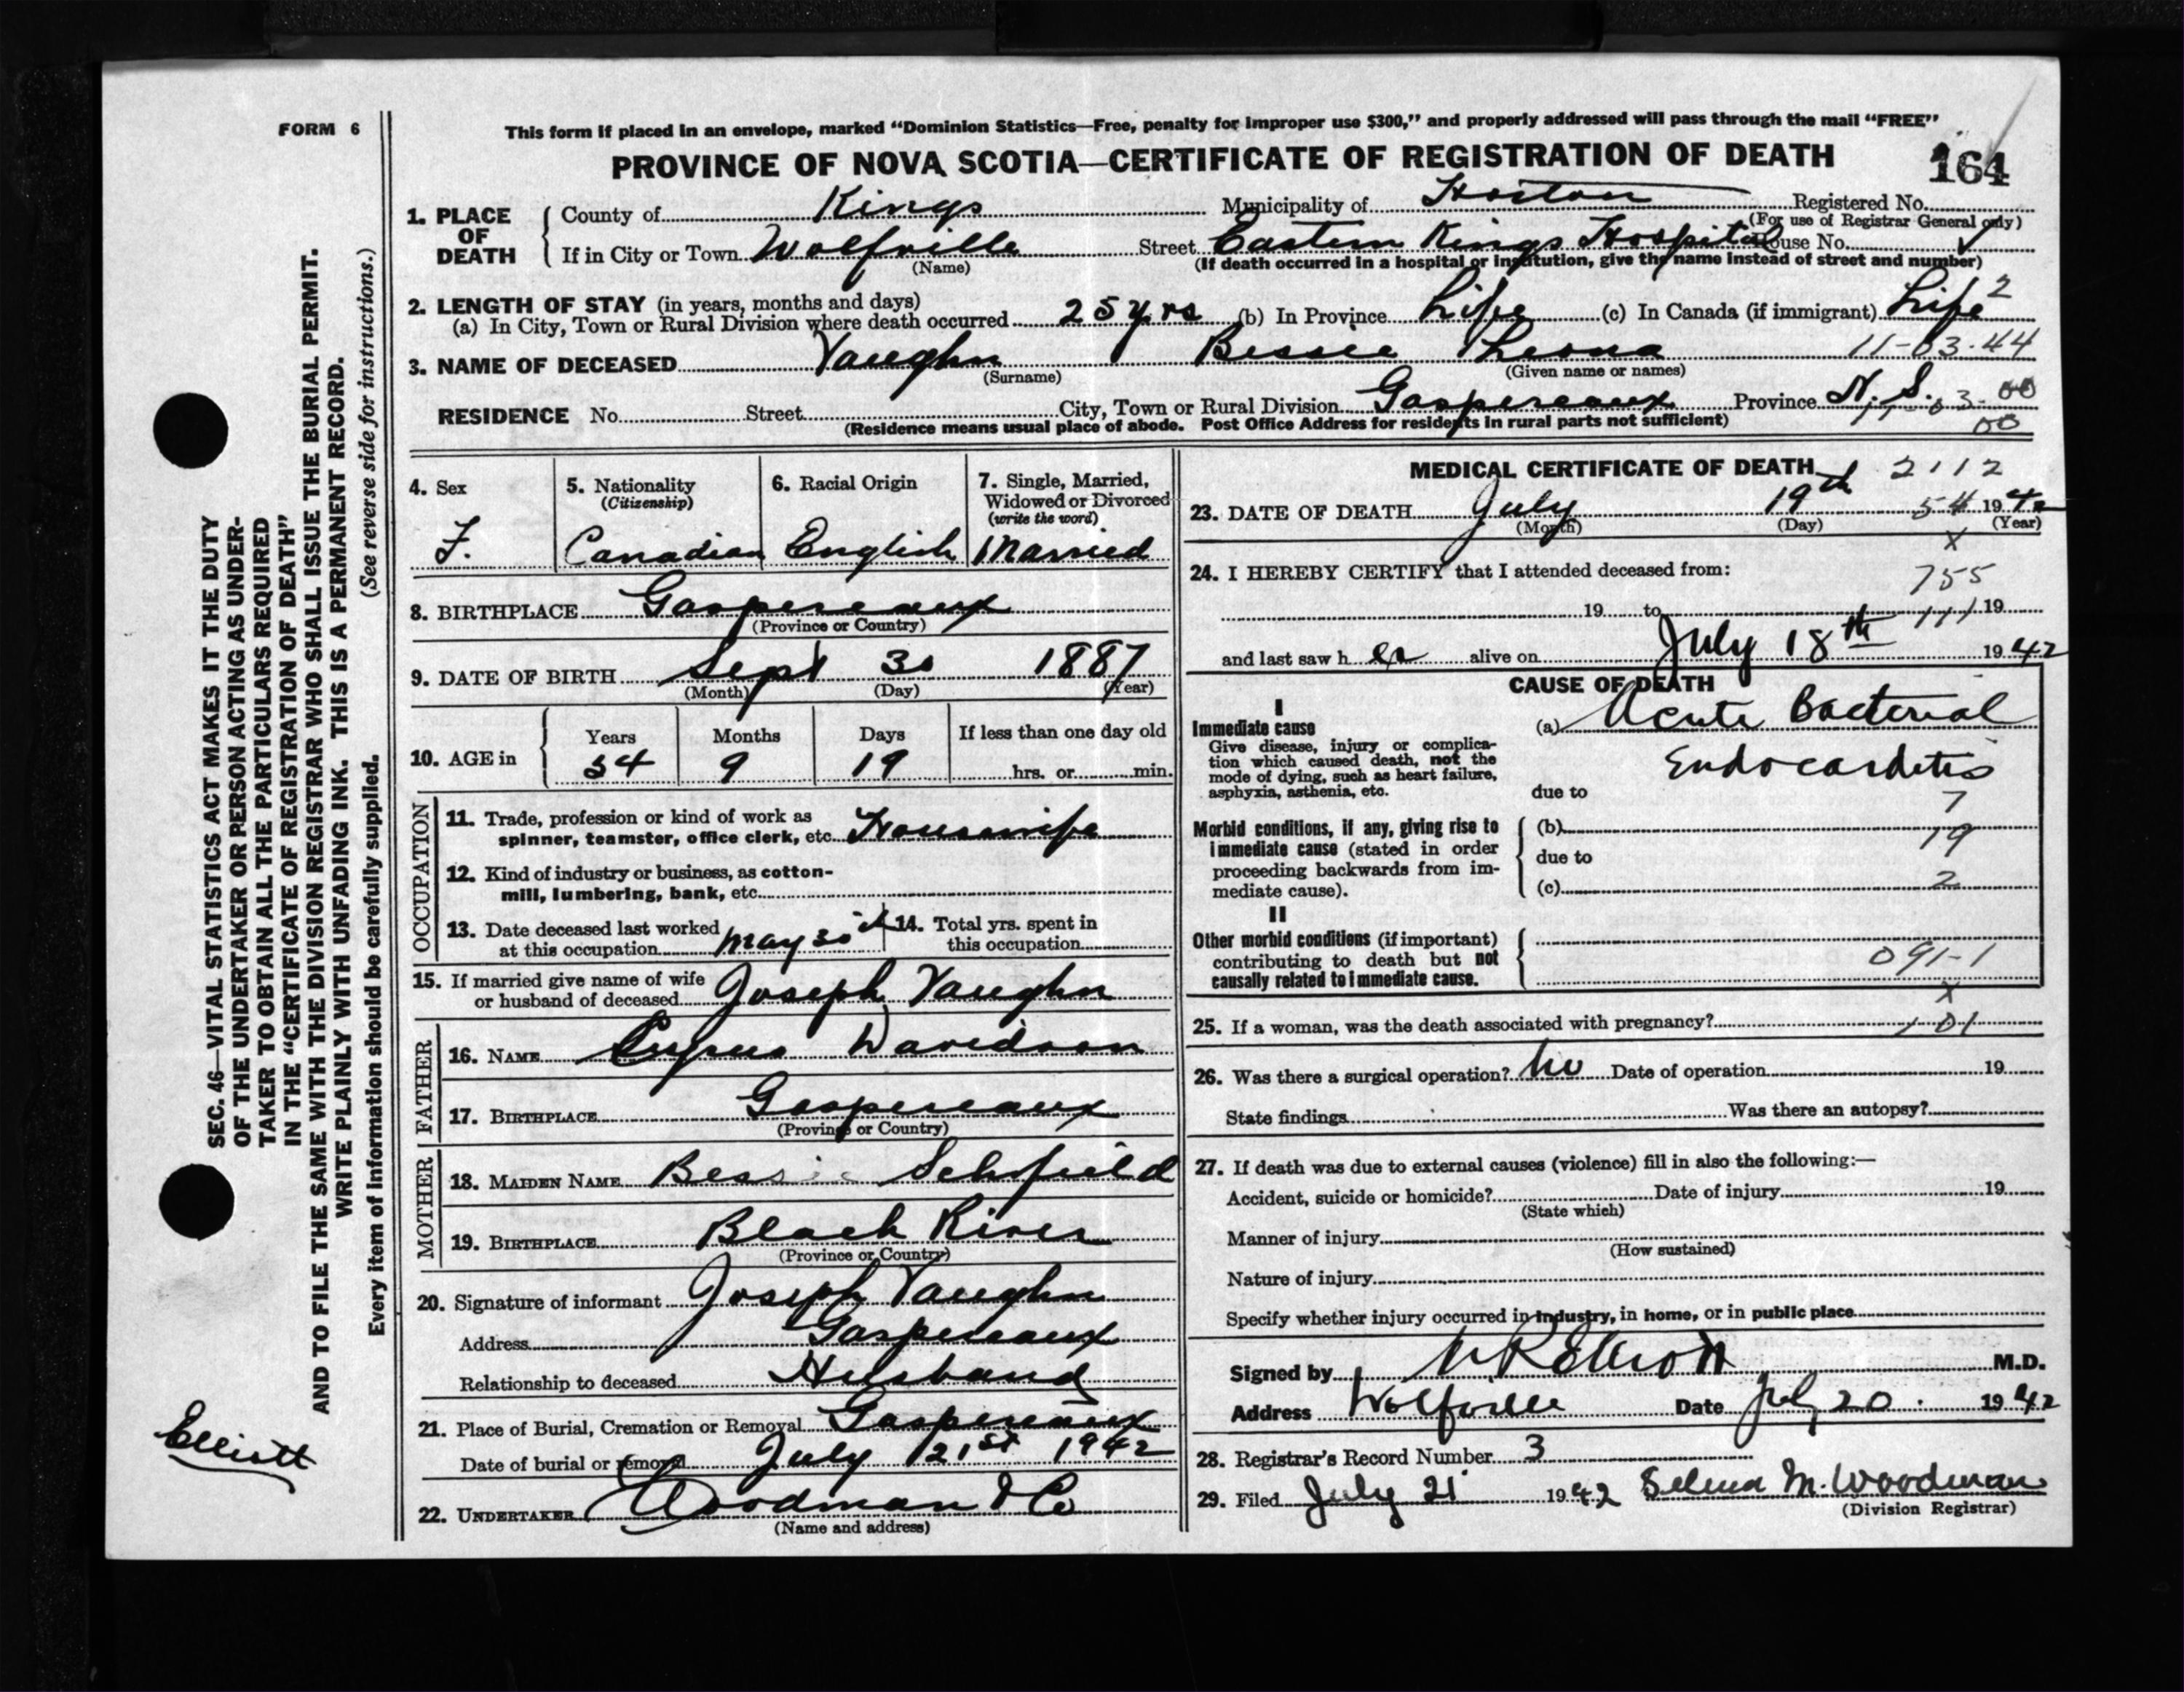 FORM 6
This form if placed in an envelope, marked "Dominion Statistics—Free, penalty for improper use $300," and properly addressed will pass through the mail "FREE"
PROVINCE OF NOVA SCOTIA—CERTIFICATE OF REGISTRATION OF DEATH
164
1. PLACE OF DEATH
County of Kings Municipality of Horton Registered No.
(For use of Registrar General only)
If in City or Town Wolfville Street Eastern Kings Hospital House No.
(Name) (If death occurred in a hospital or institution, give the name instead of street and number)
2. LENGTH OF STAY (in years, months and days)
(a) In City, Town or Rural Division where death occurred 25 yrs (b) In Province Life (c) In Canada (if immigrant) Life 2
3. NAME OF DECEASED Vaughn Bessie Leona 11-03-44
(Surname) (Given name or names)
RESIDENCE No. Street City, Town or Rural Division Gaspereaux Province N.S.
(Residence means usual place of abode. Post Office Address for residents in rural parts not sufficient)
4. Sex F.
5. Nationality (Citizenship) Canadian
6. Racial Origin English
7. Single, Married, Widowed or Divorced (write the word) Married
8. BIRTHPLACE Gaspereaux
(Province or Country)
9. DATE OF BIRTH Sept 30 1887
(Month) (Day) (Year)
10. AGE in Years Months Days If less than one day old
54 9 19 hrs. or min.
OCCUPATION
11. Trade, profession or kind of work as
spinner, teamster, office clerk, etc. Housewife
12. Kind of industry or business, as cotton-
mill, lumbering, bank, etc.
13. Date deceased last worked
at this occupation May 30th
14. Total yrs. spent in
this occupation
15. If married give name of wife
or husband of deceased Joseph Vaughn
FATHER
16. NAME Cyrus Davidson
17. BIRTHPLACE Gaspereaux
(Province or Country)
MOTHER
18. MAIDEN NAME Bessie Schofield
19. BIRTHPLACE Black River
(Province or Country)
20. Signature of informant Joseph Vaughn
Address Gaspereaux
Relationship to deceased Husband
21. Place of Burial, Cremation or Removal Gaspereaux
Date of burial or removal July 21st 1942
22. UNDERTAKER Woodman & Co
(Name and address)
MEDICAL CERTIFICATE OF DEATH 2112
23. DATE OF DEATH July 19th 54 1942
(Month) (Day) (Year)
x
24. I HEREBY CERTIFY that I attended deceased from: 755
19 to 111 19
and last saw h er alive on July 18th 1942
CAUSE OF DEATH
I
Immediate cause
Give disease, injury or complica-
tion which caused death, not the
mode of dying, such as heart failure,
asphyxia, asthenia, etc.
(a) Acute Bacterial
Endocarditis
due to 7
Morbid conditions, if any, giving rise to
immediate cause (stated in order
proceeding backwards from im-
mediate cause).
(b) 19
due to
(c) 2
II
Other morbid conditions (if important)
contributing to death but not
causally related to immediate cause.
091-1
x
25. If a woman, was the death associated with pregnancy? 101
26. Was there a surgical operation? No Date of operation 19
State findings Was there an autopsy?
27. If death was due to external causes (violence) fill in also the following:—
Accident, suicide or homicide? Date of injury 19
(State which)
Manner of injury
(How sustained)
Nature of injury
Specify whether injury occurred in industry, in home, or in public place
Signed by Elliott M.D.
Address Wolfville Date July 20. 1942
28. Registrar's Record Number 3
29. Filed July 21 1942 Selma M. Woodman
(Division Registrar)
SEC. 46—VITAL STATISTICS ACT MAKES IT THE DUTY
OF THE UNDERTAKER OR PERSON ACTING AS UNDER-
TAKER TO OBTAIN ALL THE PARTICULARS REQUIRED
IN THE "CERTIFICATE OF REGISTRATION OF DEATH"
AND TO FILE THE SAME WITH THE DIVISION REGISTRAR WHO SHALL ISSUE THE BURIAL PERMIT.
WRITE PLAINLY WITH UNFADING INK. THIS IS A PERMANENT RECORD.
Every item of information should be carefully supplied. (See reverse side for instructions.)
Elliott